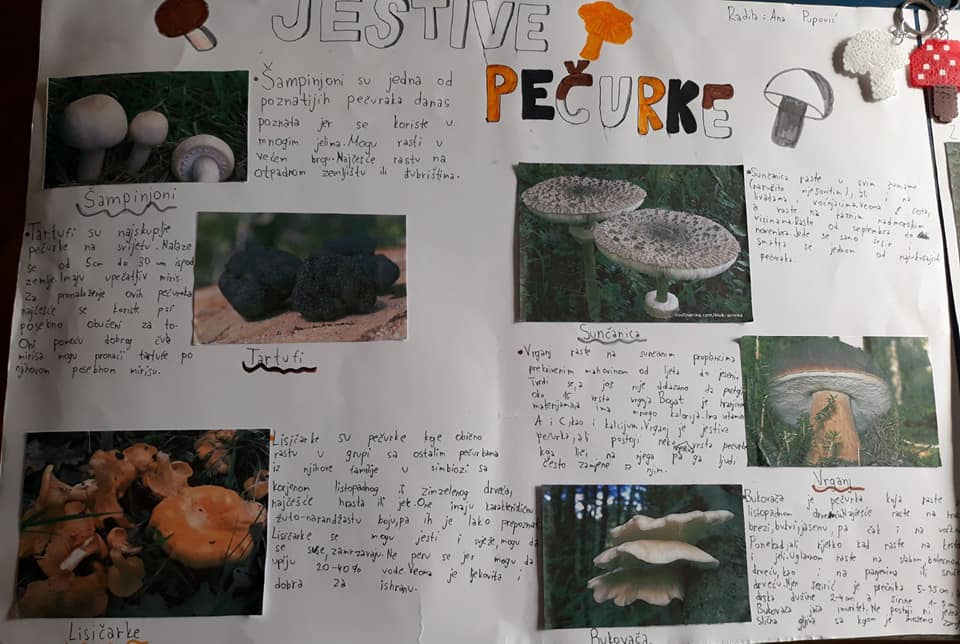 JESTIVE
PEČURKE
Radila: Ana Pupović
• Šampinjoni su jedna od
poznatijih pečuraka danas
poznata jer se koriste u
mnogim jelima. Mogu rasti u
većem broju. Najčešće rastu na
otpadnom zemljištu ili đubrištima.
Šampinjoni
• Tartufi su najskuplje
pečurke na svijetu. Nalaze
se od 5cm do 30 cm ispod
zemlje. Imaju upečatljiv miris.
Za pronalaženje ovih pečuraka
najčešće se koriste psi
posebno obučeni za to.
Oni pomoću dobrog čula
mirisa mogu pronaći tartufe po
njihovom posebnom mirisu.
Tartufi
• Sunčanica raste u svim šumama
(naročito mješovitim), ali i na
livadama i voćnjacima. Veoma je česta,
a raste na raznim nadmorskim
visinama. Raste od septembra do
novembra. Jede se samo šešir
smatra se jednom od najukusnijih
pečuraka.
Sunčanica
• Vrganj raste na sunčanim proplancima
prekrivenim mahovinom od ljeta do jeseni.
Tvrdi se, a još nije dokazano da postoji
oko 15 vrsta vrganja. Bogat je hranjivim
materijama i ima mnogo kalorija. Ima vitamin
A i C, kao i kalcijum. Vrganj je jestiva
pečurka, ali postoji neka vrsta pečurke
koja liči na njega pa ga ljudi
često zamjene s njim.
Vrganj
Lisičarke su pečurke koje obično
rastu u grupi sa ostalim pečurkama
iz njihove familije u simbiozi sa
korjenom listopadnog i zimzelenog drveća,
najčešće hrasta ili jele. One imaju karakterističnu
žuto-narandžastu boju, pa ih je lako prepoznati
Lisičarke se mogu jesti i svježe, mogu da
se suše, zamrzavaju. Ne peru se jer mogu da
upiju 20-40% vode. Veoma je ljekovita i
dobra za ishranu.
Lisičarke
Bukovača je pečurka koja raste
listopadnom drveću. Najčešće raste na
brezi, bukvi, jasenu, pa čak i na
Ponekad, ali rjetko kad raste na
jeli. Uglavnom raste na slabom bolesnom
drveću, kao i na panjevima ili
drveću. Njen šeširić je prečnika 5-35cm
drška dužine 2-4cm a širine 1-3
Bukovača jača imunitet. Ne postoji ni jedna
slična gljiva sa kojom je možemo
Bukovača